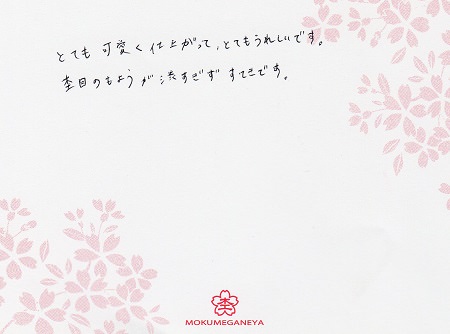 とても可愛く仕上がって、とてもうれしいです。
杢目のもようが流すぎず すてきです。
杢
MOKUMEGANEYA